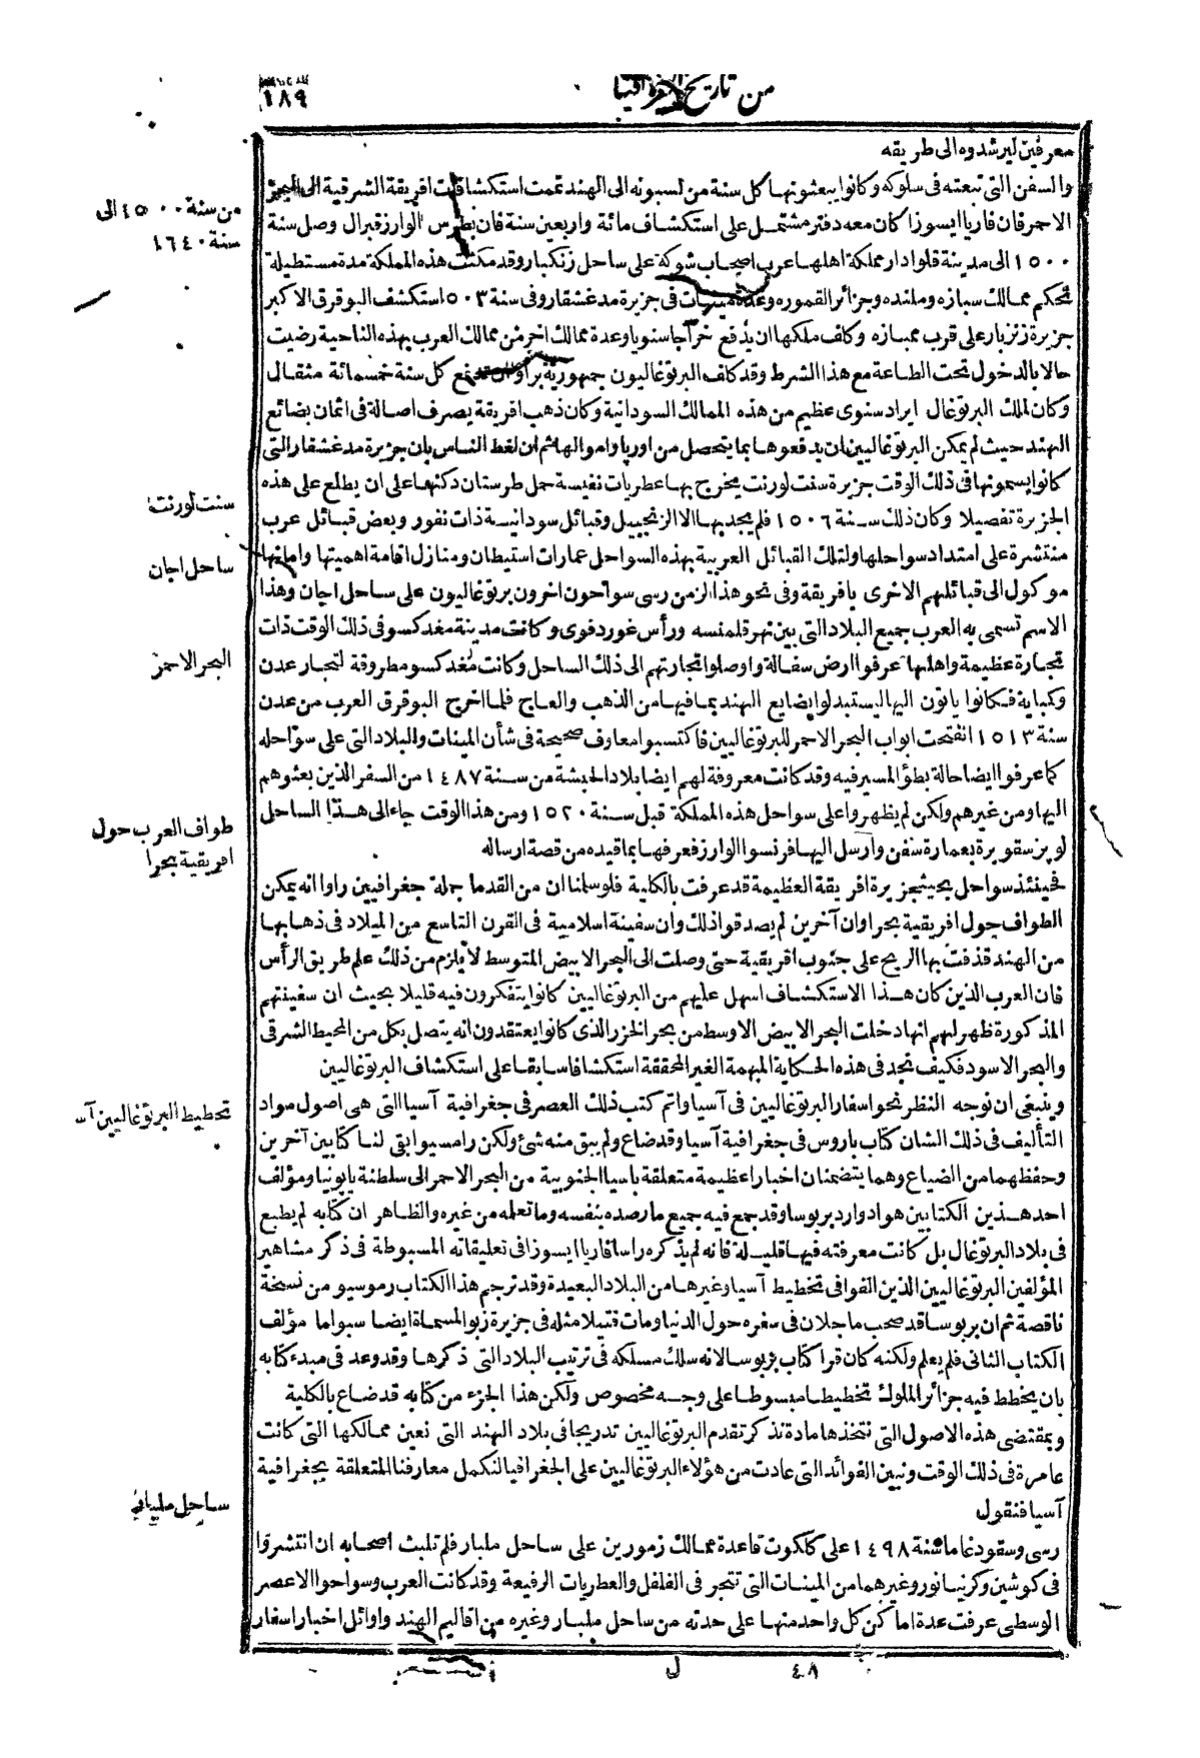 من تاريخ الجغرافيا
١٨٩
معرفين ليرشدوه الى طريقه
والسفن التى تبعته فى سلوكه وكانوا يبعثونها كل سنة من لسبونه الى الهند تمت استكشافات افريقة الشرقية الى البحر
من سنة ١٥٠٠ الى
سنة ١٦٤٠
الاحمر فان فاريا ايسوزا كان معه دفتر مشتمل على استكشاف مائة واربعين سنة فان بطرس الوارز قبرال وصل سنة
١٥٠٠ الى مدينة قلوا دار مملكة اهلها عرب اصحاب شوكة على ساحل زنكبار وقد مكثت هذه المملكة مدة مستطيلة
تحكم ممالك سبازه وملنده وجزائر القموره وعدة مينات فى جزيرة مدغشقار وفى سنة ١٥٠٣ استكشف البوقرق الاكبر
جزيرة زنزبار على قرب ممبازه وكلف ملكها ان يدفع خراجا سنويا وعدة ممالك اخر من ممالك العرب بهذه الناحية رضيت
حالا بالدخول تحت الطاعة مع هذا الشرط وقد كلف البرتوغاليون جمهورية براوا ان تدفع كل سنة خمسمائة مثقال
وكان لملك البرتوغال ايراد سنوى عظيم من هذه الممالك السودانية وكان ذهب افريقة يصرف اصالة فى اثمان بضائع
الهند حيث لم يمكن البرتوغاليين ان يدفعوها بما يتحصل من اورپا واموالها ثم ان لغط الناس بان جزيرة مدغشقار التى
كانوا يسمونها فى ذلك الوقت جزيرة سنت لورنت يخرج بها عطريات نفيسة حمل طرستان دكنها على ان يطلع على هذه
سنت لورنت
الجزيرة تفصيلا وكان ذلك سنة ١٥٠٦ فلم يجد بها الا الزنجبيل وقبائل سودانية ذات نفور وبعض قبائل عرب
منتشرة على امتداد سواحلها ولتلك القبائل العربية بهذه السواحل عمارات استيطان ومنازل اقامة اهميتها وامانتها
ساحل اجان
موكول الى قبائلهم الاخرى بافريقة وفى نحو هذا الزمن رسى سواحون اخرون برتوغاليون على ساحل اجان وهذا
الاسم تسمى به العرب جميع البلاد التى بين نهر قلمنسه ورأس غوردفوى وكانت مدينة مغدكسو فى ذلك الوقت ذات
تجارة عظيمة واهلها عرفوا ارض سفالة واوصلوا تجارتهم الى ذلك الساحل وكانت مغدكسو مطروقة لتجار عدن
البحر الاحمر
وكمباية فكانوا ياتون اليها ليستبدلوا بضايع الهند بما فيها من الذهب والعاج فلما اخرج البوقرق العرب من عدن
سنة ١٥١٣ انفتحت ابواب البحر الاحمر للبرتوغاليين فاكتسبوا معارف صحيحة فى شأن المينات والبلاد التى على سواحله
كما عرفوا ايضا حالة بطؤ المسير فيه وقد كانت معروفة لهم ايضا بلاد الحبشة من سنة ١٤٨٧ من السفر الذين بعثوهم
اليها ومن غيرهم ولكن لم يظهروا على سواحل هذه المملكة قبل سنة ١٥٢٠ ومن هذا الوقت جاء الى هذا الساحل
لوپز سقويرة بعمارة سفن وارسل اليها فرنسوا الوارز فعرفها بما قيده من قصة ارساله
طواف العرب حول
افريقية بحرا
فحينئذ سواحل بحيثجزيرة افريقة العظيمة قد عرفت بالكلية فلو سلمنا ان من القدما جملة جغرافيين راوا انه يمكن
الطواف حول افريقية بحرا وان آخرين لم يصدقوا ذلك وان سفينة اسلامية فى القرن التاسع من الميلاد فى ذهابها
من الهند قذفت بها الريح على جنوب افريقية حتى وصلت الى البحر الابيض المتوسط لا يلزم من ذلك علم طريق الرأس
فان العرب الذين كان هذا الاستكشاف اسهل عليهم من البرتوغاليين كانوا يتفكرون فيه قليلا بحيث ان سفينتهم
المذكورة ظهر لهم انها دخلت البحر الابيض الاوسط من بحر الخزر الذى كانوا يعتقدون انه يتصل بكل من المحيط الشرقى
والبحر الاسود فكيف تجد فى هذه الحكاية المبهمة الغير المحققة استكشافا سابقا على استكشاف البرتوغاليين
وينبغى ان نوجه النظر نحو اسفار البرتوغاليين فى آسيا واتم كتب ذلك العصر فى جغرافية آسيا التى هى اصول مواد
تخطيط البرتوغاليين آسـ
التأليف فى ذلك الشان كتاب باروس فى جغرافية آسيا وقد ضاع ولم يبق منه شئ ولكن رامسيو ابقى لنا كتابين آخرين
وحفظهما من الضياع وهما يتضمنان اخبارا عظيمة متعلقة باسيا الجنوبية من البحر الاحمر الى سلطنة ياپونيا ومؤلف
احد هذين الكتابين هو ادوارد بربوسا وقد جمع فيه جميع ما رصده بنفسه وما تعلمه من غيره والظاهر ان كتابه لم يطبع
فى بلاد البرتوغال بل كانت معرفته فيها قليلة فانه لم يذكره راسا فاريا ايسوزا فى تعليقاته المبسوطة فى ذكر مشاهير
المؤلفين البرتوغاليين الذين الفوا فى تخطيط آسيا وغيرها من البلاد البعيدة وقد ترجم هذا الكتاب رموسيو من نسخة
ناقصة ثم ان بربوسا قد صحب ماجلان فى سفره حول الدنيا ومات قتيلا مثله فى جزيرة زبو المسماة ايضا سبو اما مؤلف
الكتاب الثانى فلم يعلم ولكنه كان قرا كتاب بربوسا لانه سلك مسلكه فى ترتيب البلاد التى ذكرها وقد وعد فى مبدء كتابه
بان يخطط فيه جزائر الملوك تخطيطا مبسوطا على وجه مخصوص ولكن هذا الجزء من كتابه قد ضاع بالكلية
وبمقتضى هذه الاصول التى نتخذها مادة نذكر تقدم البرتوغاليين تدريجا فى بلاد الهند التى نعين ممالكها التى كانت
عامرة فى ذلك الوقت ونبين الفوائد التى عادت من هؤلاء البرتوغاليين على الجغرافيا لنكمل معارفنا المتعلقة بجغرافية
آسيا فنقول
ساحل مليبار
رسى وسقود غاما سنة ١٤٩٨ على كلكوت قاعدة ممالك زمورين على ساحل مليبار فلم تلبث اصحابه ان انتشروا
فى كوشين وكرنيانور وغيرهما من المينات التى تتجر فى الفلفل والعطريات الرفيعة وقد كانت العرب وسواحوا الاعصر
الوسطى عرفت عدة اماكن كل واحد منها على حدته من ساحل مليبار وغيره من اقاليم الهند واوائل اخبار اسفار
٤٨
ل